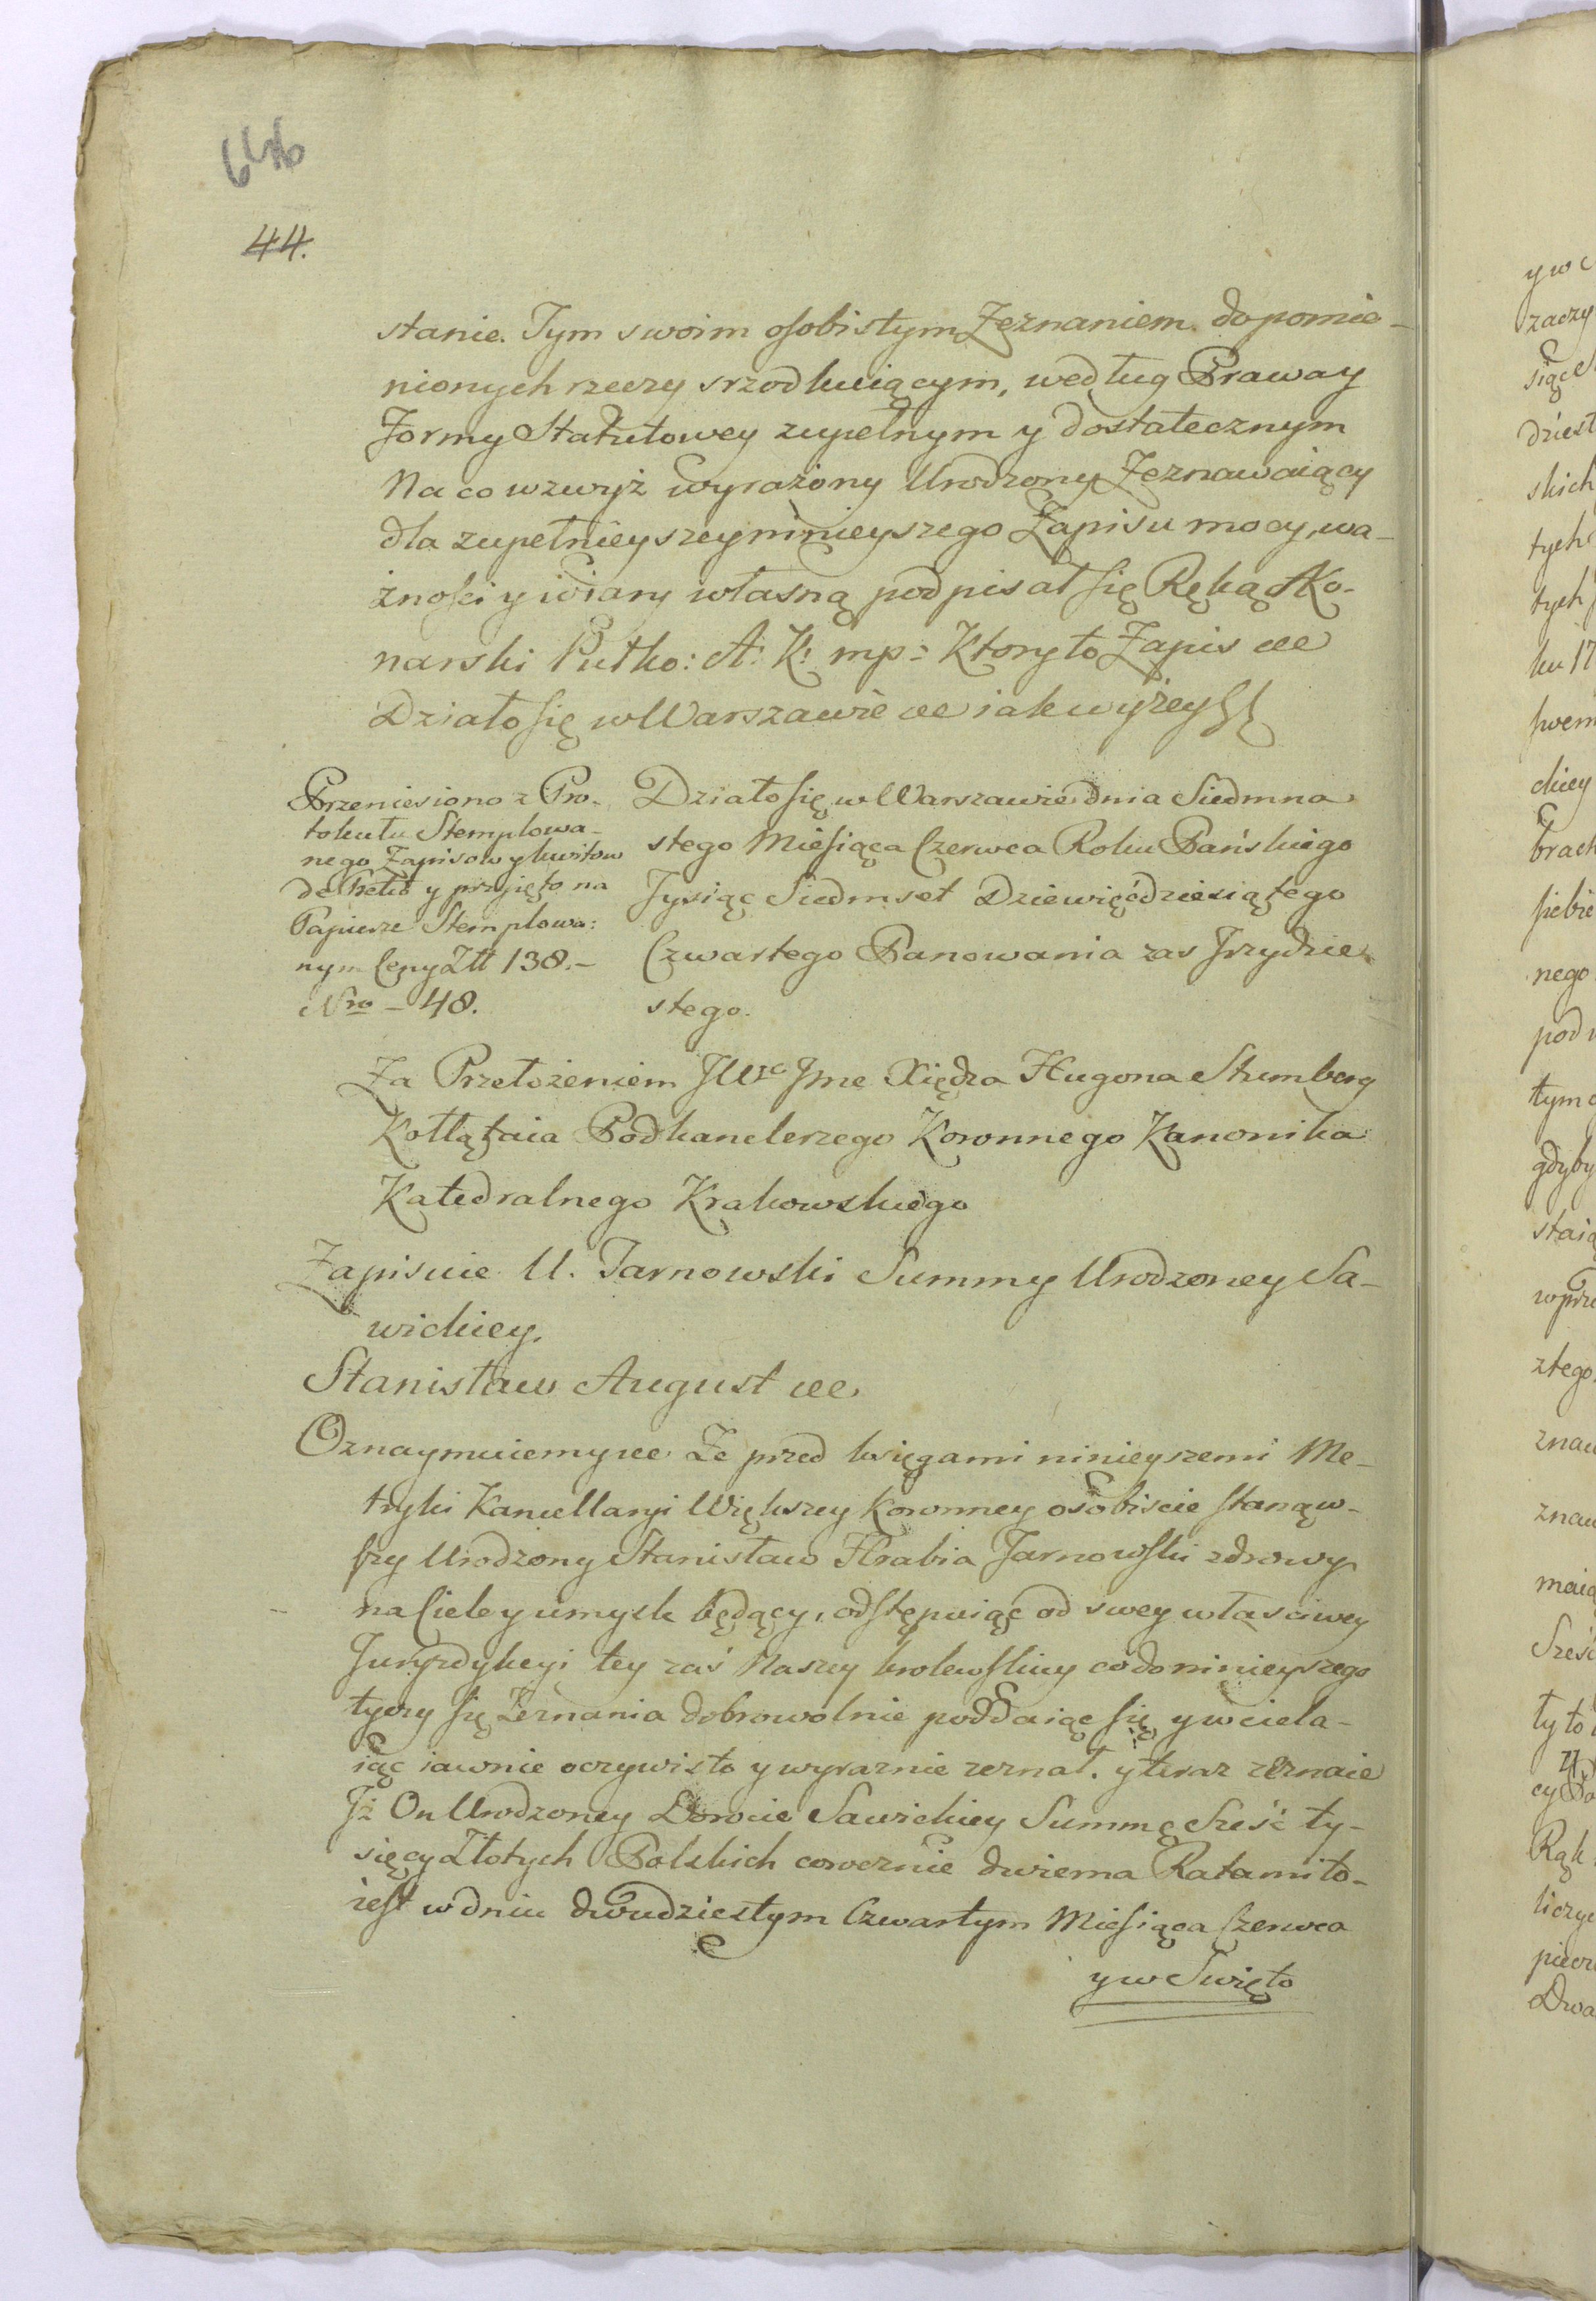 646
44.
stanie. Tym swoim osobistym Zeznaniem do pomie-
nionych rzeczy srzodkuiącym, według Prawa y
Formy Statutowey zupełnym y dostatecznym
Na co wzwyż wyrażony Urodzony Zeznawaiący
dla zupełnieyszey ninieyszego Zapisu mocy, wa-
żności y wiary własną podpisał się Ręką Ko-
narski Putko: A: K: mp: Ktory to Zapis etc
Działo się w Warszawie etc iak wyżey
Przeniesiono z Pro-
tokułu Stemplowa-
nego Zapisow y kwitow
y przyięto na
Papierze Stemplowa:
nym Ceny Złł 138.-
Nro - 48.
Działo się w Warszawie dnia Siedmna
stego Miesiąca Czerwca Roku Pańskiego
Tysiąc Siedmset Dziewięćdziesiątego
Czwartego Panowania zas Trzydzie
stego.
Za Przełożeniem JWgo Jmc Xiędza Hugona Stumberg
Kołłątaia Podkanclerzego Koronnego Kanonika
Katedralnego Krakowskiego
Zapisuie U. Tarnowski Summy Urodzoney Sa-
wickiey.
Stanisław August etc
Oznaymuiemy etc Ze przed księgami ninieyszemi Me-
tryki Kancellaryi Większey Koronney osobiscie stanąw-
szy Urodzony Stanisław Hrabia Tarnowski zdrowy
na Ciele y umysle będący, odstępuiąc od swey własciwey
Juryzdykcyi tey zaś Naszey krolewskiey co do ninieyszego
tyczy się Zeznania dobrowolnie poddaiąc się y wciela-
iąc iawnie oczywisto y wyraznie zeznał. y teraz zeznaie
Jż On Urodzoney Dorocie Sawickiey Summę Sześć ty-
sięcy Złotych Polskich corocznie dwiema Ratami to-
iest w dniu dwudziestym Czwartym Miesiąca Czerwca
y w Swięto